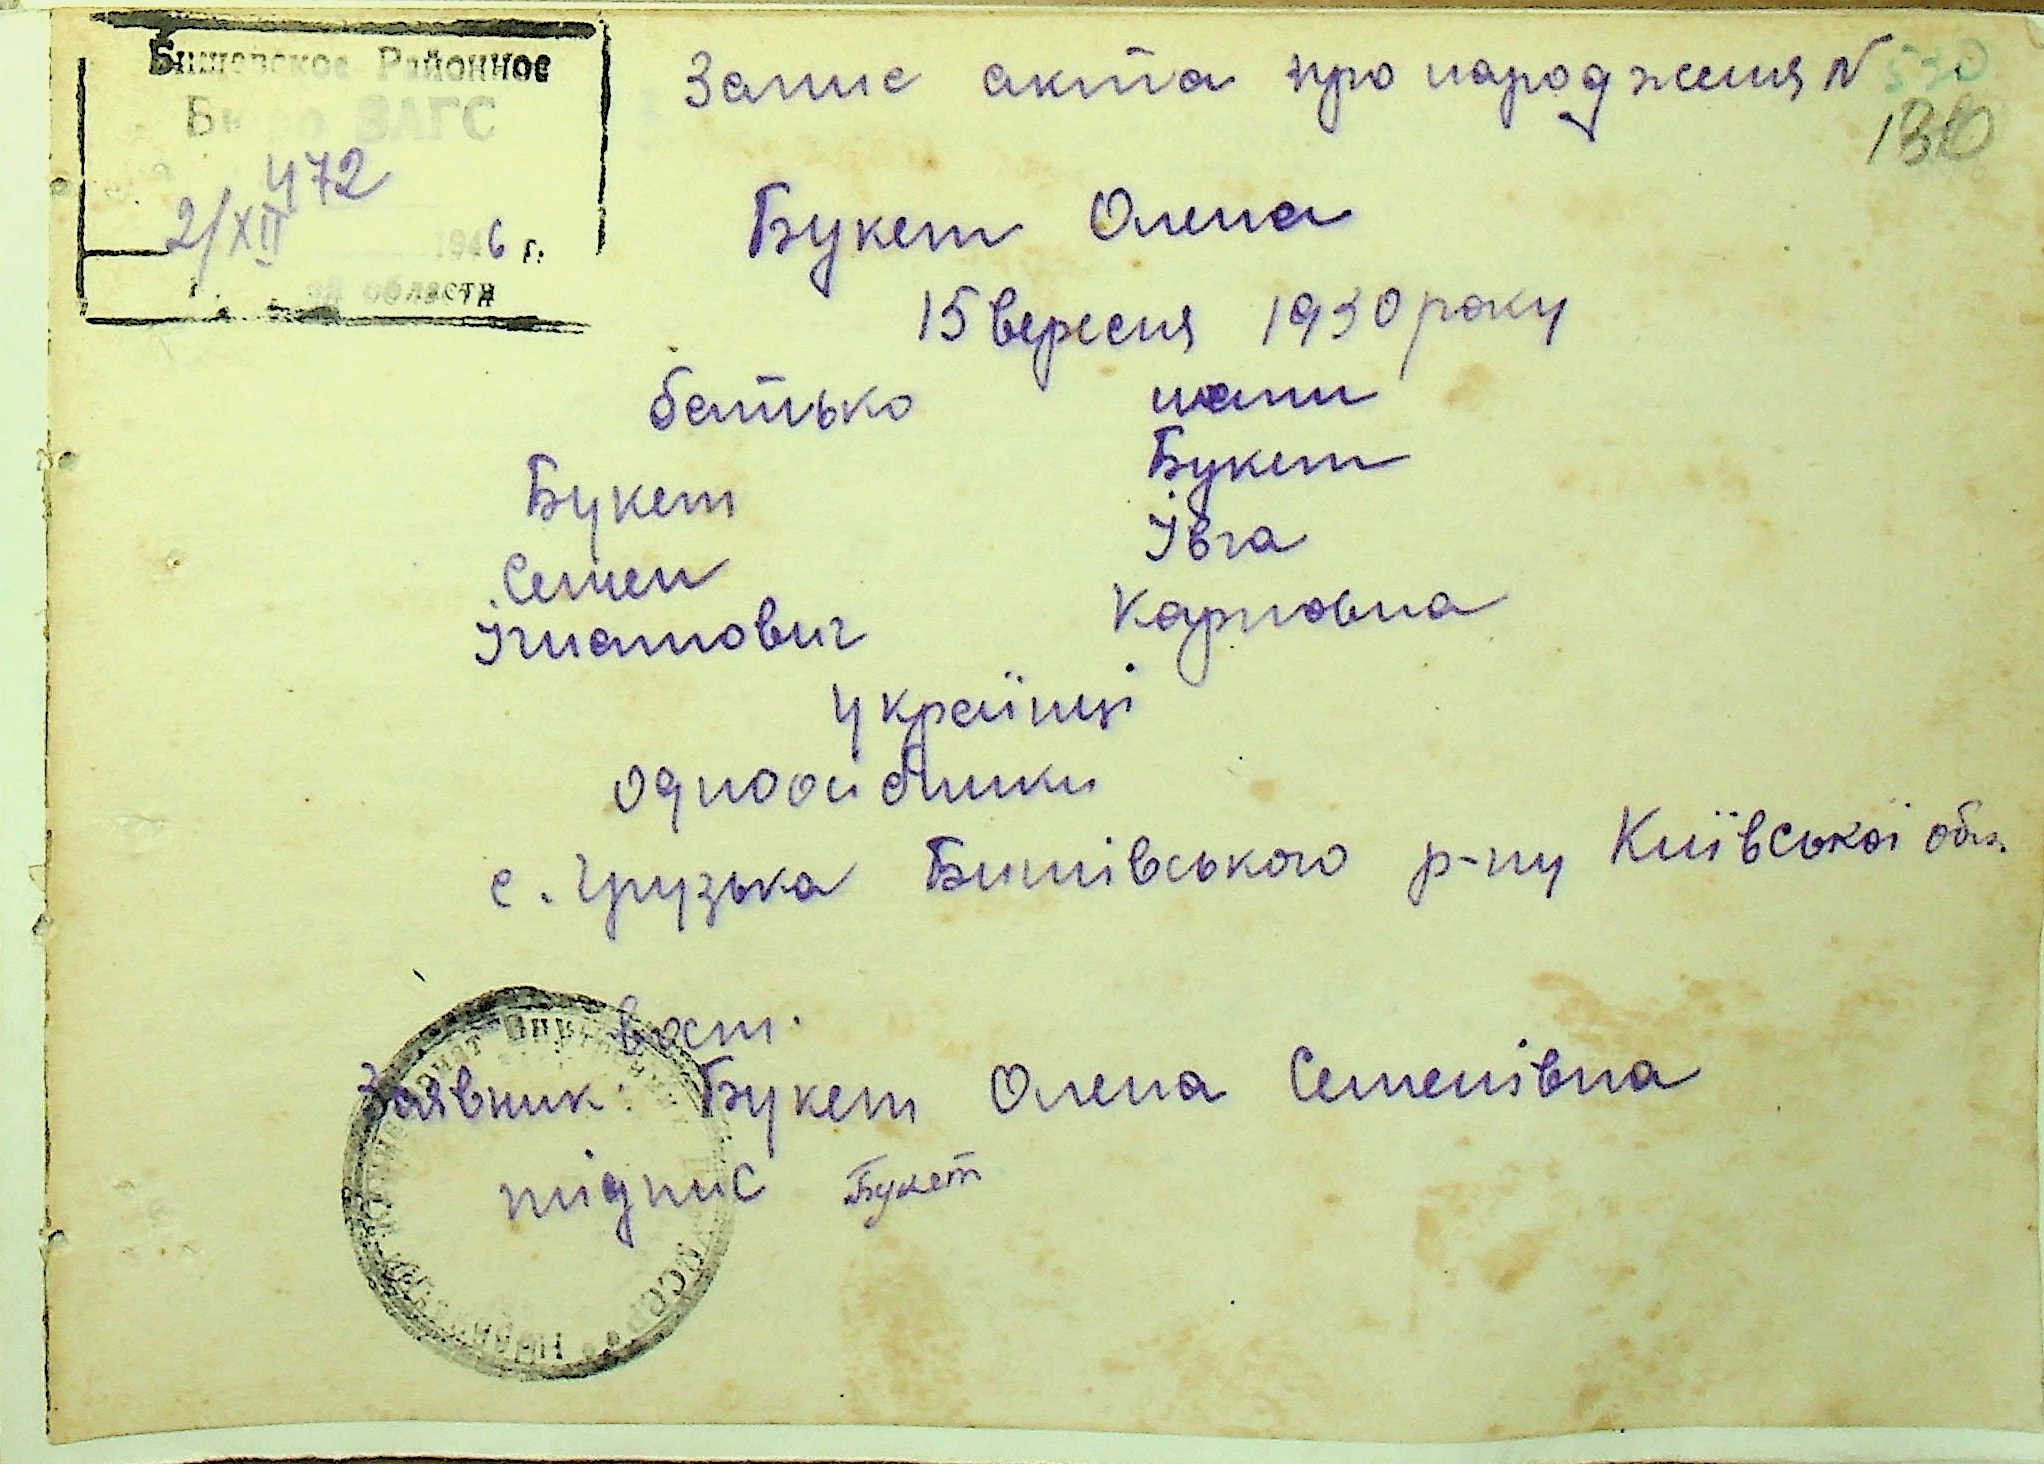 Бишевское Районное
Бюро ЗАГС
472
2/XII 1946 г.
области
Запис акта про народження N 530
130
Букет Олена
15 вересня 1930 року
батько мати
Букет Букет
Семен Івга
Ігнатович Карповна
українці
одноосібники
с. Грузька Бишівського р-ну Київської обл.
вост.
Заявник: Букет Олена Семенівна
підпис Букет